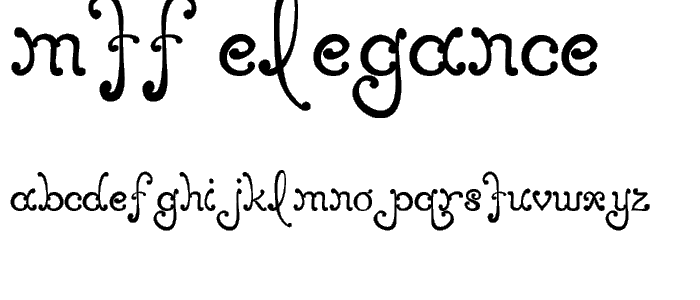 mtf elegance
abcdefghijklmnopqrstuvwxyz